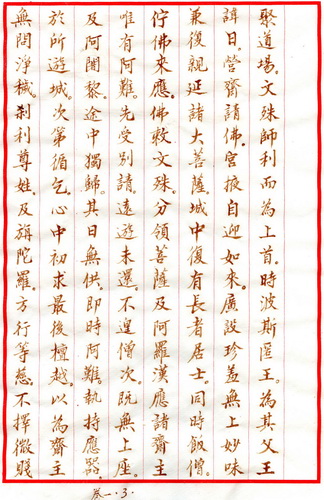 聚道場。文殊師利而為上首。時波斯匿王。為其父王
諱日。營齋請佛。宮掖自迎如來。廣設珍羞無上妙味
兼復親延諸大菩薩。城中復有長者居士。同時飯僧。
佇佛來應。佛敕文殊。分領菩薩及阿羅漢應諸齋主
唯有阿難。先受別請。遠遊未還。不遑僧次。既無上座。
及阿闍黎。途中獨歸。其日無供。即時阿難。執持應器。
於所遊城。次第循乞。心中初求最後檀越。以為齋主
無問淨穢。剎利尊姓。及旃陀羅。方行等慈。不擇微賤
卷一.3.